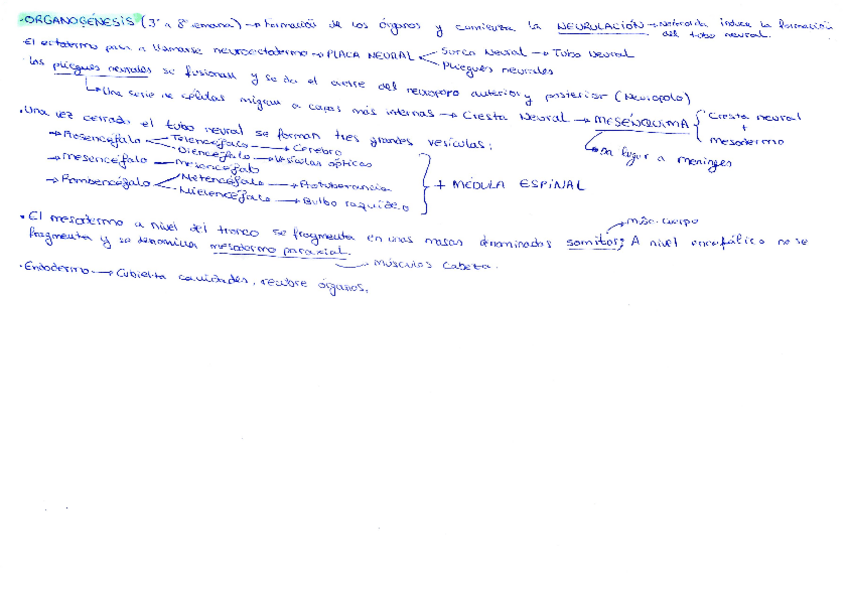 ·ORGANOGÉNESIS (3ª a 8ª semana) → Formación de los órganos y comienza la NEURULACIÓN → Notocorda induce la formación
del tubo neural.
·El ectodermo pasa a llamarse neuroectodermo → PLACA NEURAL
Surco Neural → Tubo Neural
Pliegues neurales
·Los pliegues neurales se fusionan y se da el cierre del neuroporo anterior y posterior (Neuroporo)
↳ Una serie de células migran a capas más internas → Cresta Neural → MESÉNQUIMA
Cresta neural
+
mesodermo
↳ Da lugar a meninges
·Una vez cerrado el tubo neural se forman tres grandes vesículas:
→ Prosencéfalo
Telencéfalo → Cerebro
Diencéfalo → Vesículas ópticas
→ Mesencéfalo — Mesencéfalo
→ Romboencéfalo
Metencéfalo → Protuberancia
Mielencéfalo → Bulbo raquídeo
+ MÉDULA ESPINAL
→ músc. cuerpo
· El mesodermo a nivel del tronco se fragmenta en unas masas denominadas somitas; A nivel encefálico no se
fragmenta y se denomina mesodermo paraxial.
Músculos cabeza.
·Endodermo → Cubierta cavidades, recubre órganos.